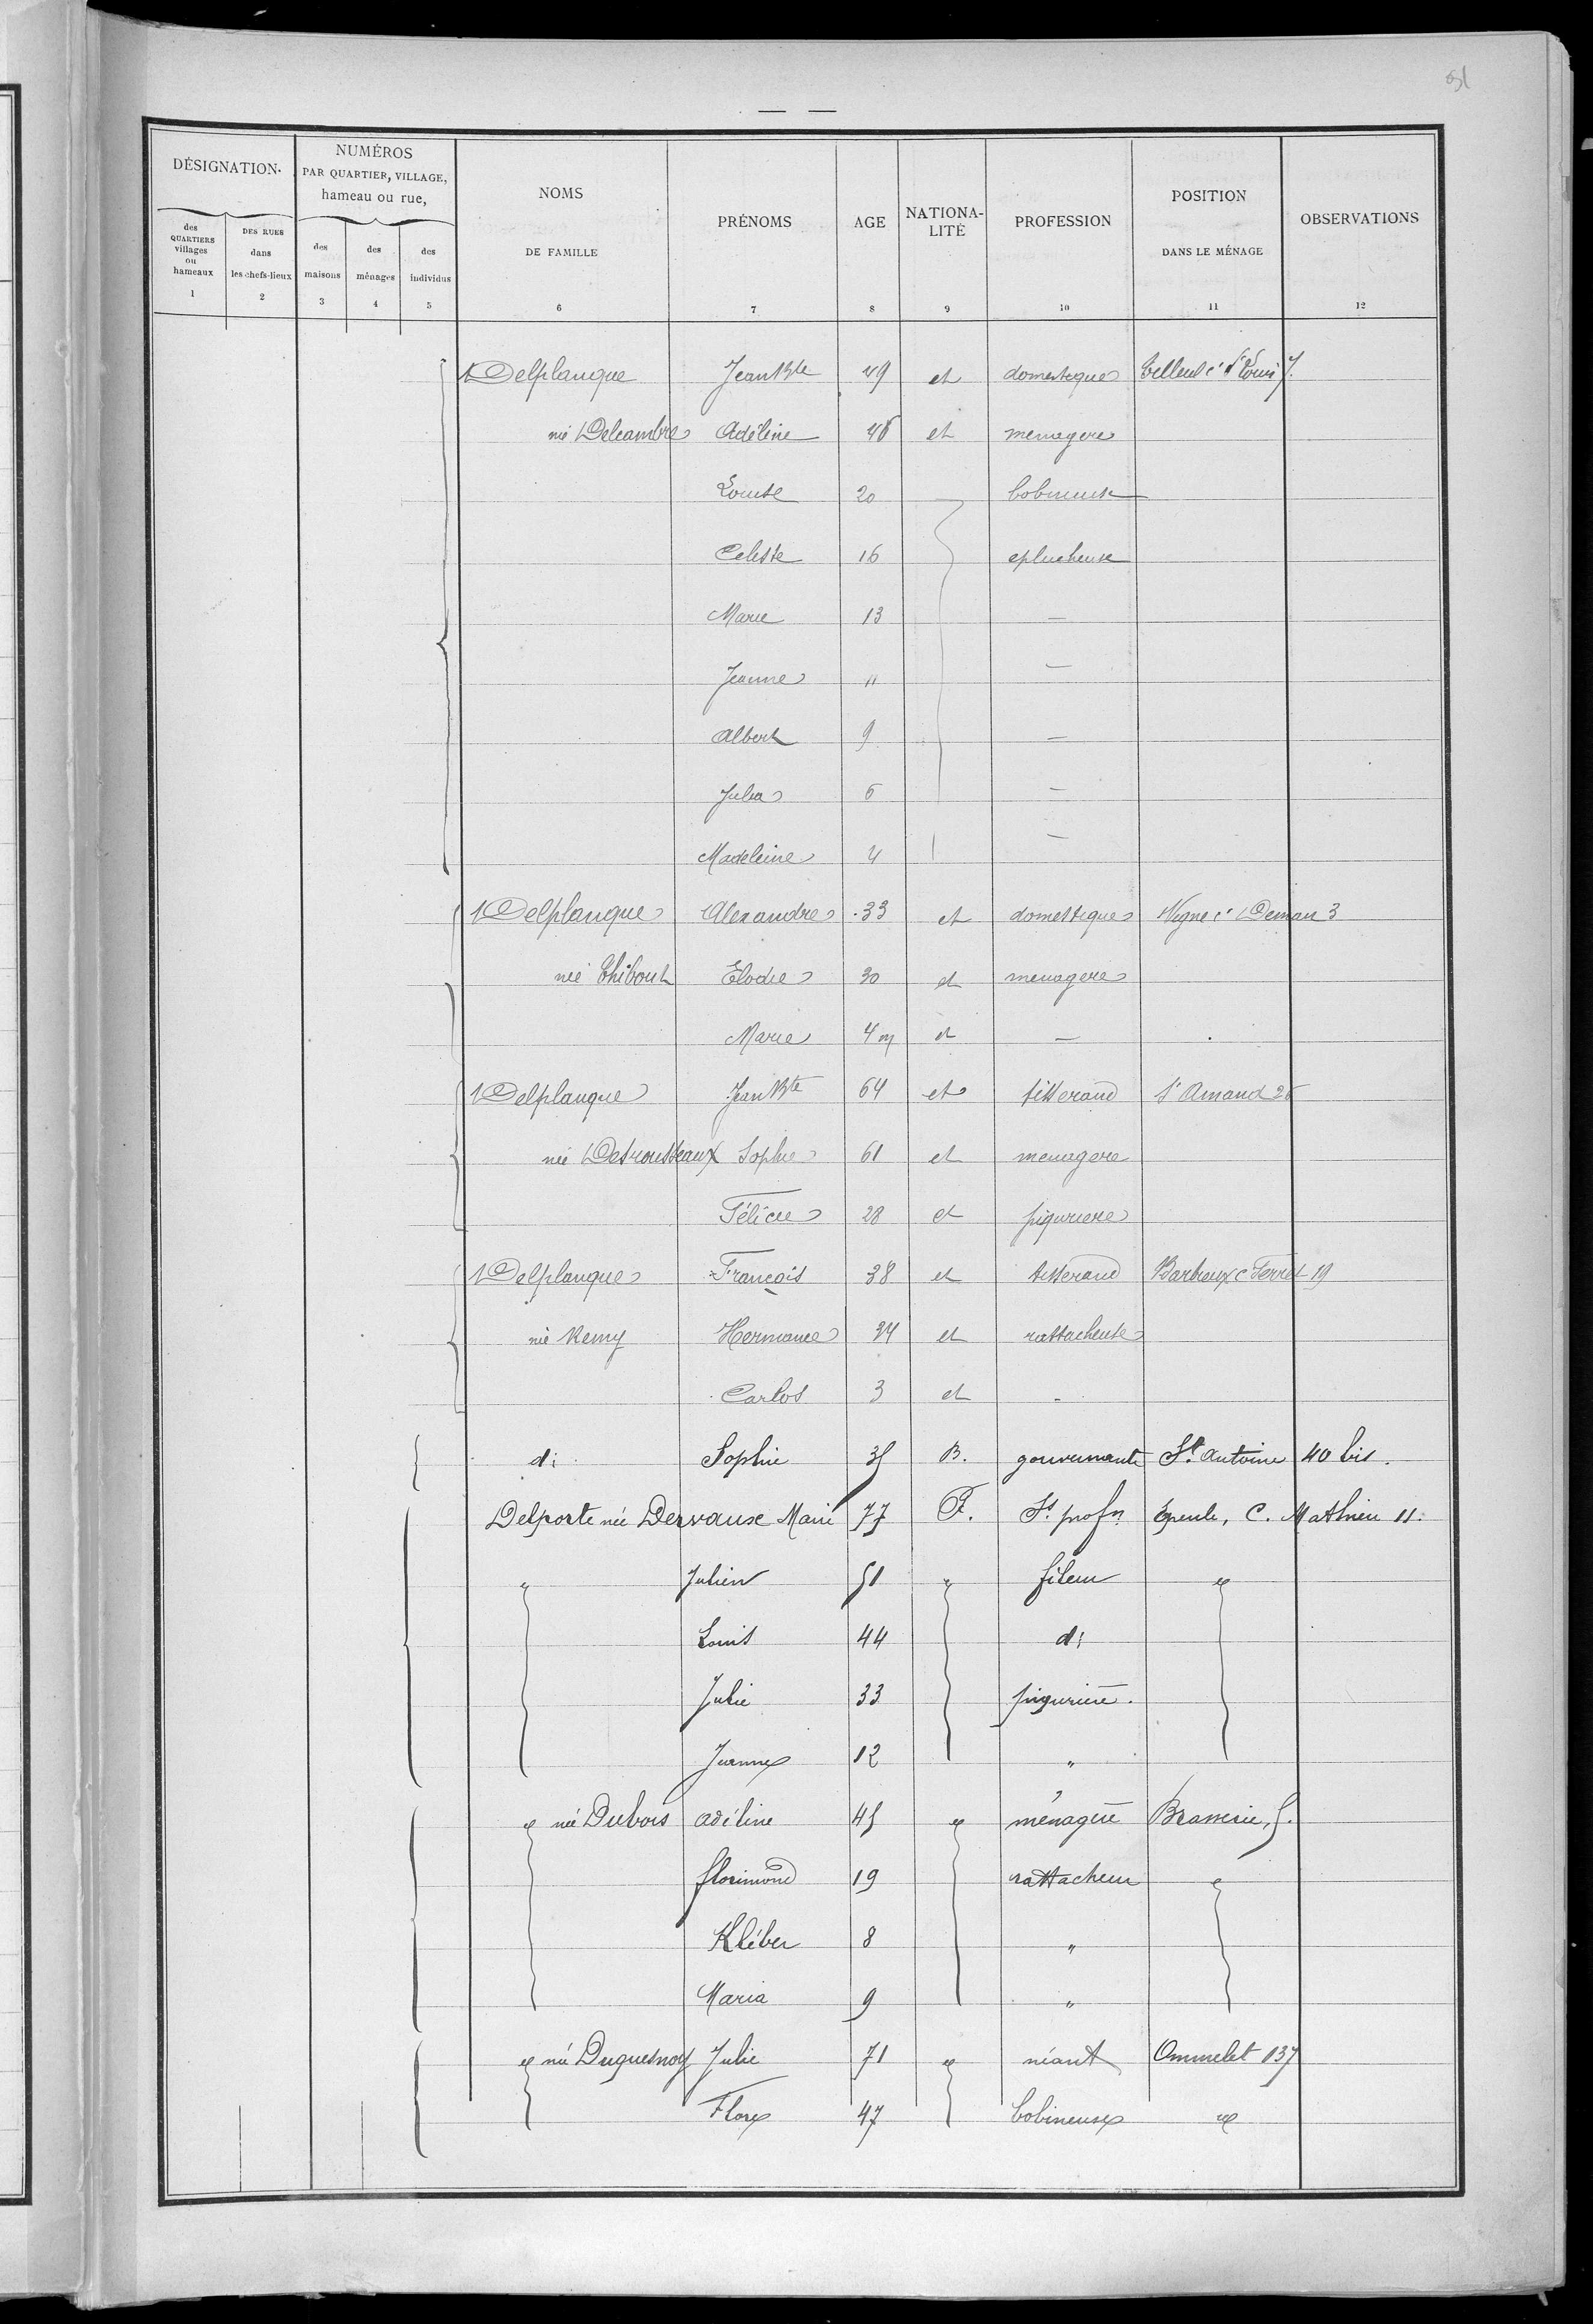 DÉSIGNATION.
NUMÉROS
PAR QUARTIER, VILLAGE,
hameau ou rue,
des
QUARTIERS
villages
ou
hameaux
1
DES RUES
dans
les chefs-lieux
2
des
maisons
3
des
ménages
4
des
individus
5
NOMS
DE FAMILLE
6
PRÉNOMS
7
AGE
8
NATIONA-
LITÉ
9
PROFESSION
10
POSITION
DANS LE MÉNAGE
11
OBSERVATIONS
12
Delplanque Jean Bte 49 et domestique Tilleul c. St Louis 7.
née Delcambre Adéline 48 et menagere
Louise 20 bobineuse
Celeste 16 eplucheuse
Marie 13 —
Jeanne 11 —
Albert 9 —
Julia 6 —
Madeleine 4 —
Delplanque Alexandre 33 et domestique Vigne c. 3
née Thibout Elodie 30 et menagere
Marie 4 m et —
Delplanque Jean Bte 64 et tisserand St Amand 26
née Desrousseaux Sophie 61 et menagere
Félicie 28 et piqurière
Delplanque François 38 et tisserand Barbieux c Ferret 19
née Remy Hermance 34 et rattacheuse
Carlos 3 et -
d: Sophie 35 B. gouvernante St. Antoine 40 bis.
Delporte née Dervaux Marie 77 F. Ss. profn. Epeule, C. Mathieu 11.
" Julien 51 " fileur "
Louis 44 d:
Julie 33 piqurière.
Jeanne 12 "
" née Dubois Adéline 45 " ménagère Brasserie, 5.
florimond 19 rattacheur "
Kléber 8 "
Maria 9 "
" née Duquesnoy Julie 71 " néant Ommelet 137
Flore 47 bobineuse "